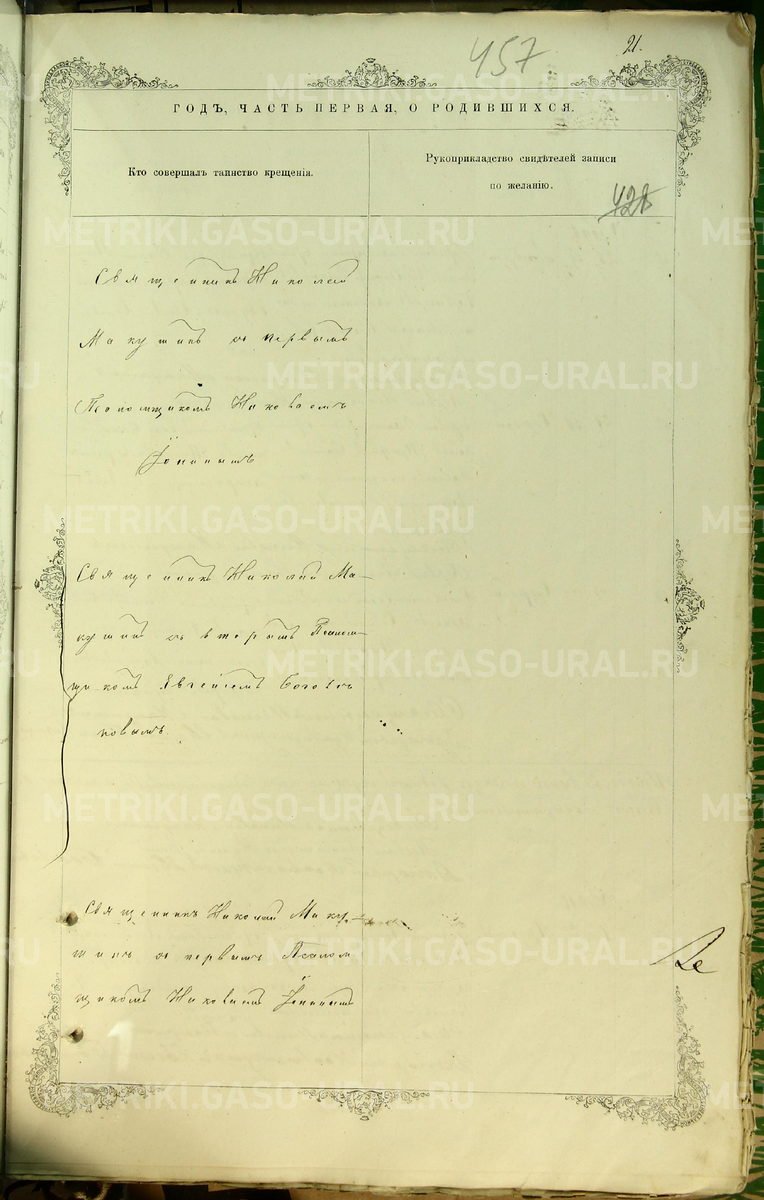 457
21.
ГОДЪ, ЧАСТЬ ПЕРВАЯ, О РОДИВШИХСЯ.
Кто совершалъ таинство крещенія.
Рукоприкладство свидѣтелей записи
по желанію.
428
Священникъ Николай
Макушинъ съ первымъ
Псаломщикомъ
Священникъ Николай Ма-
кушинъ съ вторымъ Псалом-
щикомъ
Священникъ Николай Маку-
шинъ съ первымъ Псалом
щикомъ
METRIKI.GASO-URAL.RU